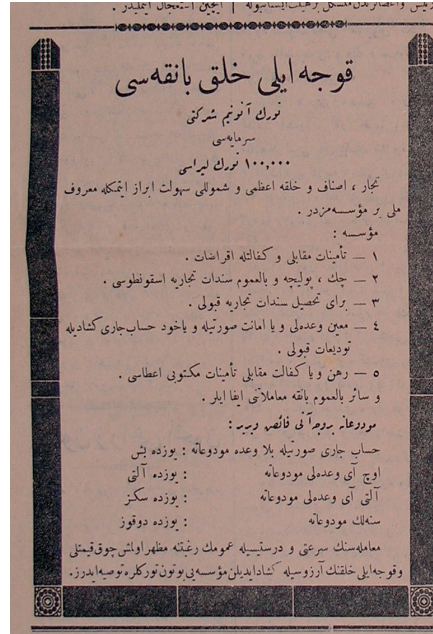 قوجه ايلى خلق بانقه‌سى
تورك آنونيم شركتى
سرمايه‌سى
١٠٠,٠٠٠ تورك ليراسى
تجار ، اصناف و خلقه اعظمى و شموللى سهولت ابراز ايتمكله معروف
ملى بر مؤسسه‌مزدر .
مؤسسه :
١ — تأمينات مقابلى و كفالتله اقراضات .
٢ — چك ، پوليچه و بالعموم سندات تجاريه اسقونطوسى .
٣ — براى تحصيل سندات تجاريه قبولى .
٤ — معين وعده‌لى و يا امانت صورتيله و ياخود حساب جارى كشاديله
توديعات قبولى .
٥ — رهن و يا كفالت مقابلى تأمينات مكتوبى اعطاسى .
و سائر بالعموم بانقه معاملاتنى ايفا ايلر .
مودوعاته بروجه آتى فائض ويرير :
حساب جارى صورتيله بلا وعده مودوعاته : يوزده بش
اوچ آى وعده‌لى مودوعاته : يوزده آلتى
آلتى آى وعده‌لى مودوعاته : يوزده سكز
سنه‌لك مودوعاته : يوزده دوقوز
معامله‌سنك سرعتى و درستيسيله عمومك رغبتنه مظهر اولمش چوق قيمتلى
و قوجه ايلى خلقنك آرزوسيله كشاد ايديلن مؤسسه‌يى بوتون توركلره توصيه ايدرز.